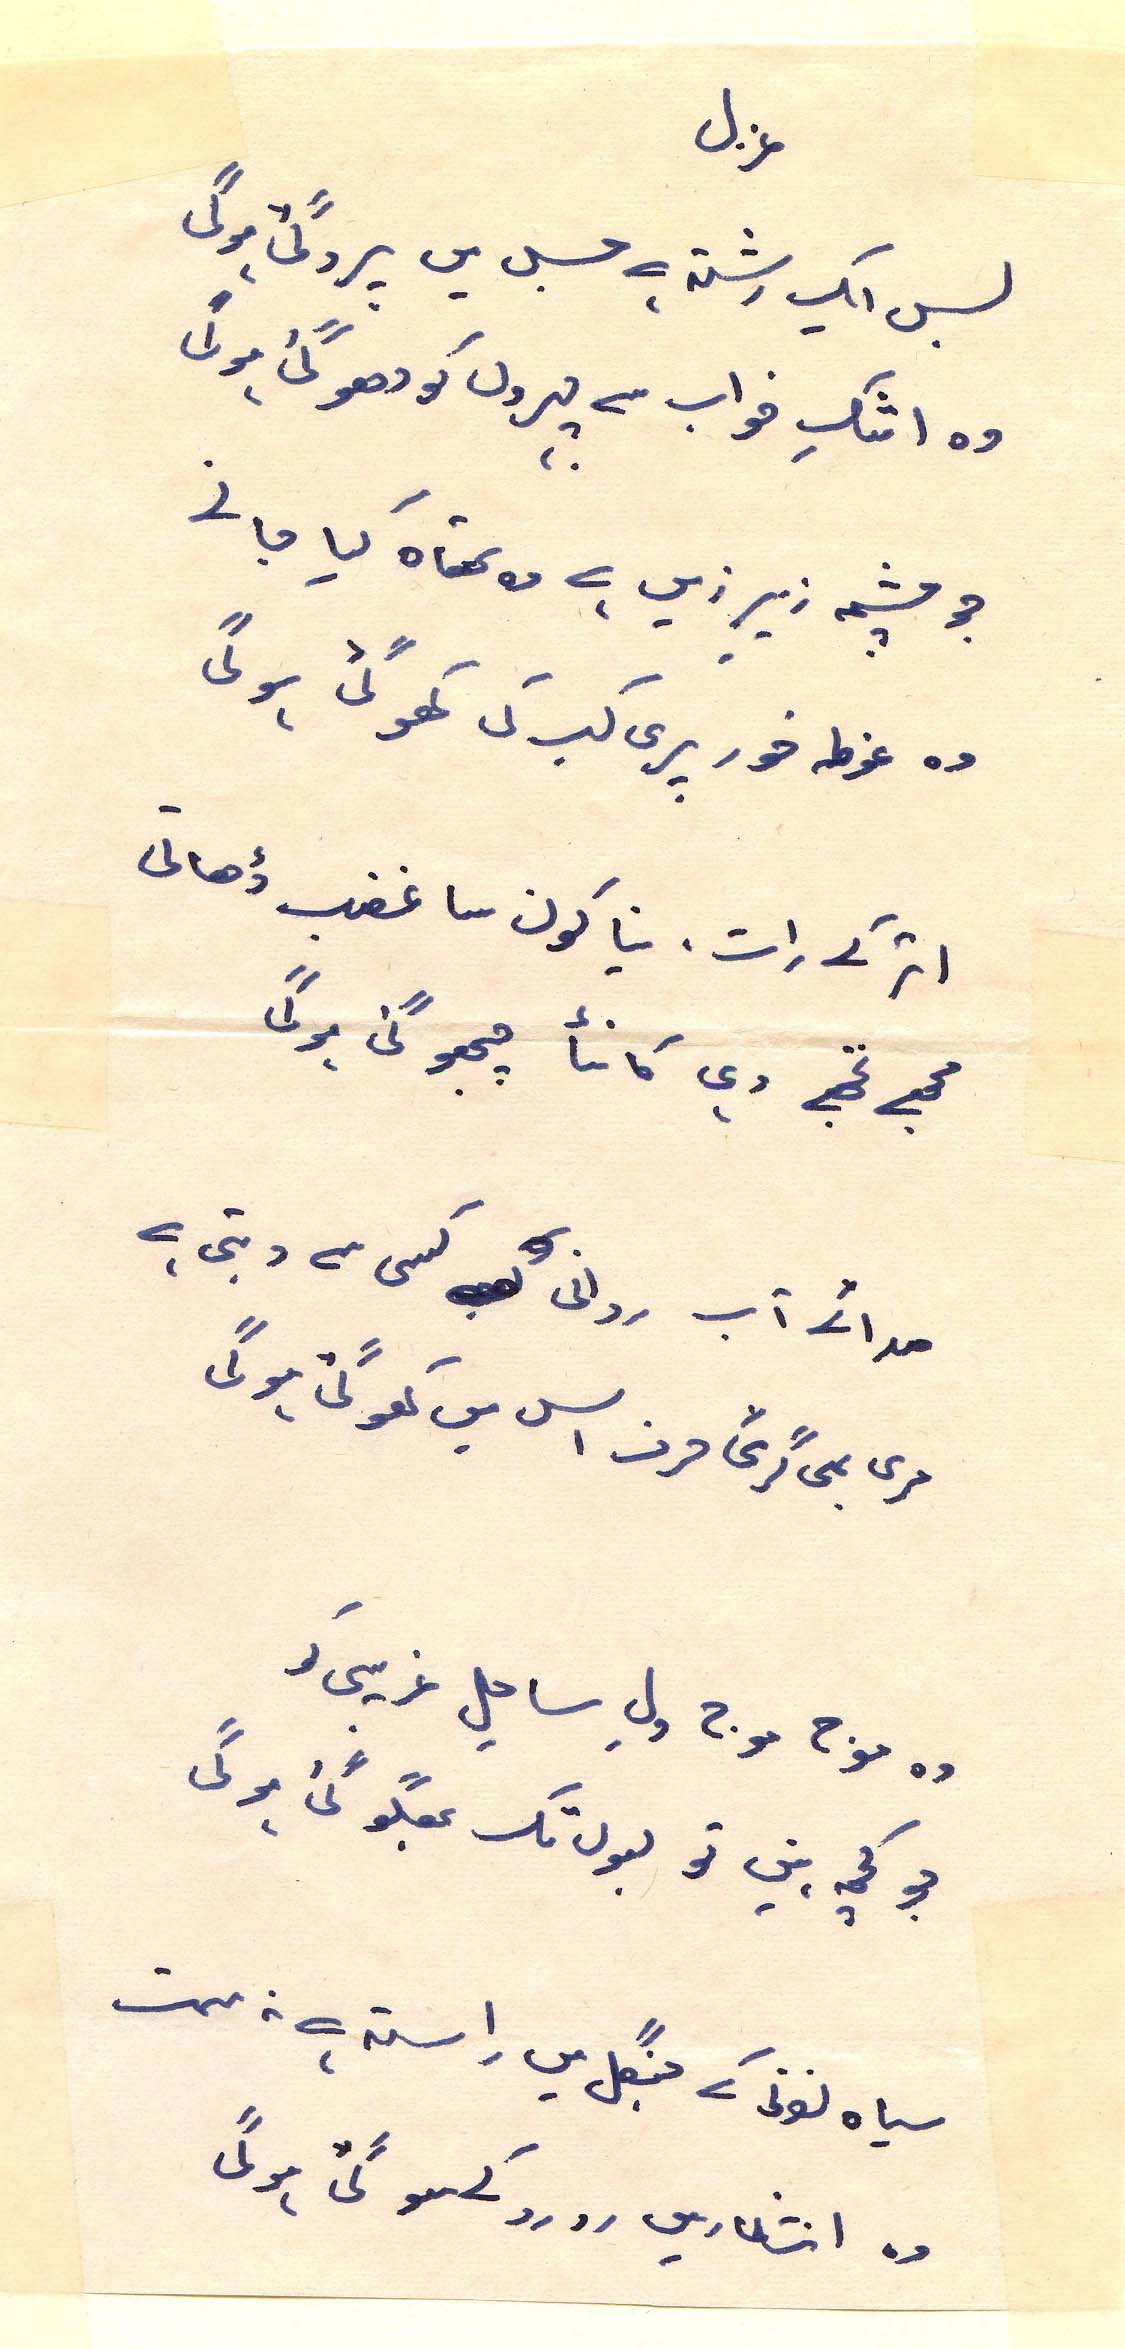 غزل
بس ایک رشتہ ہے جس میں پرو گئی ہوگی
وہ اشکِ خواب سے چہروں کو دھو گئی ہوگی
جو چشمہ زیرِ زمیں ہے وہ تھاہ کیا جانے
وہ غوطہ خور پری کب کی کھو گئی ہوگی
اتر کے رات، نیا کون سا غضب ڈھاتی
مجھے تجھے وہی کانٹا چبھو گئی ہوگی
صدائے آب روانی کسی سے دبتی ہے
مری بھی گریۂ اس میں کھو گئی ہوگی
وہ موج موج دلِ ساحلِ غریبی کو
جو کچھ نہیں تو لبوں تک بھگو گئی ہوگی
سیاہ کے جنگل میں راستہ ہے نہ سمت
وہ انتظار میں رو رو کے سو گئی ہوگی